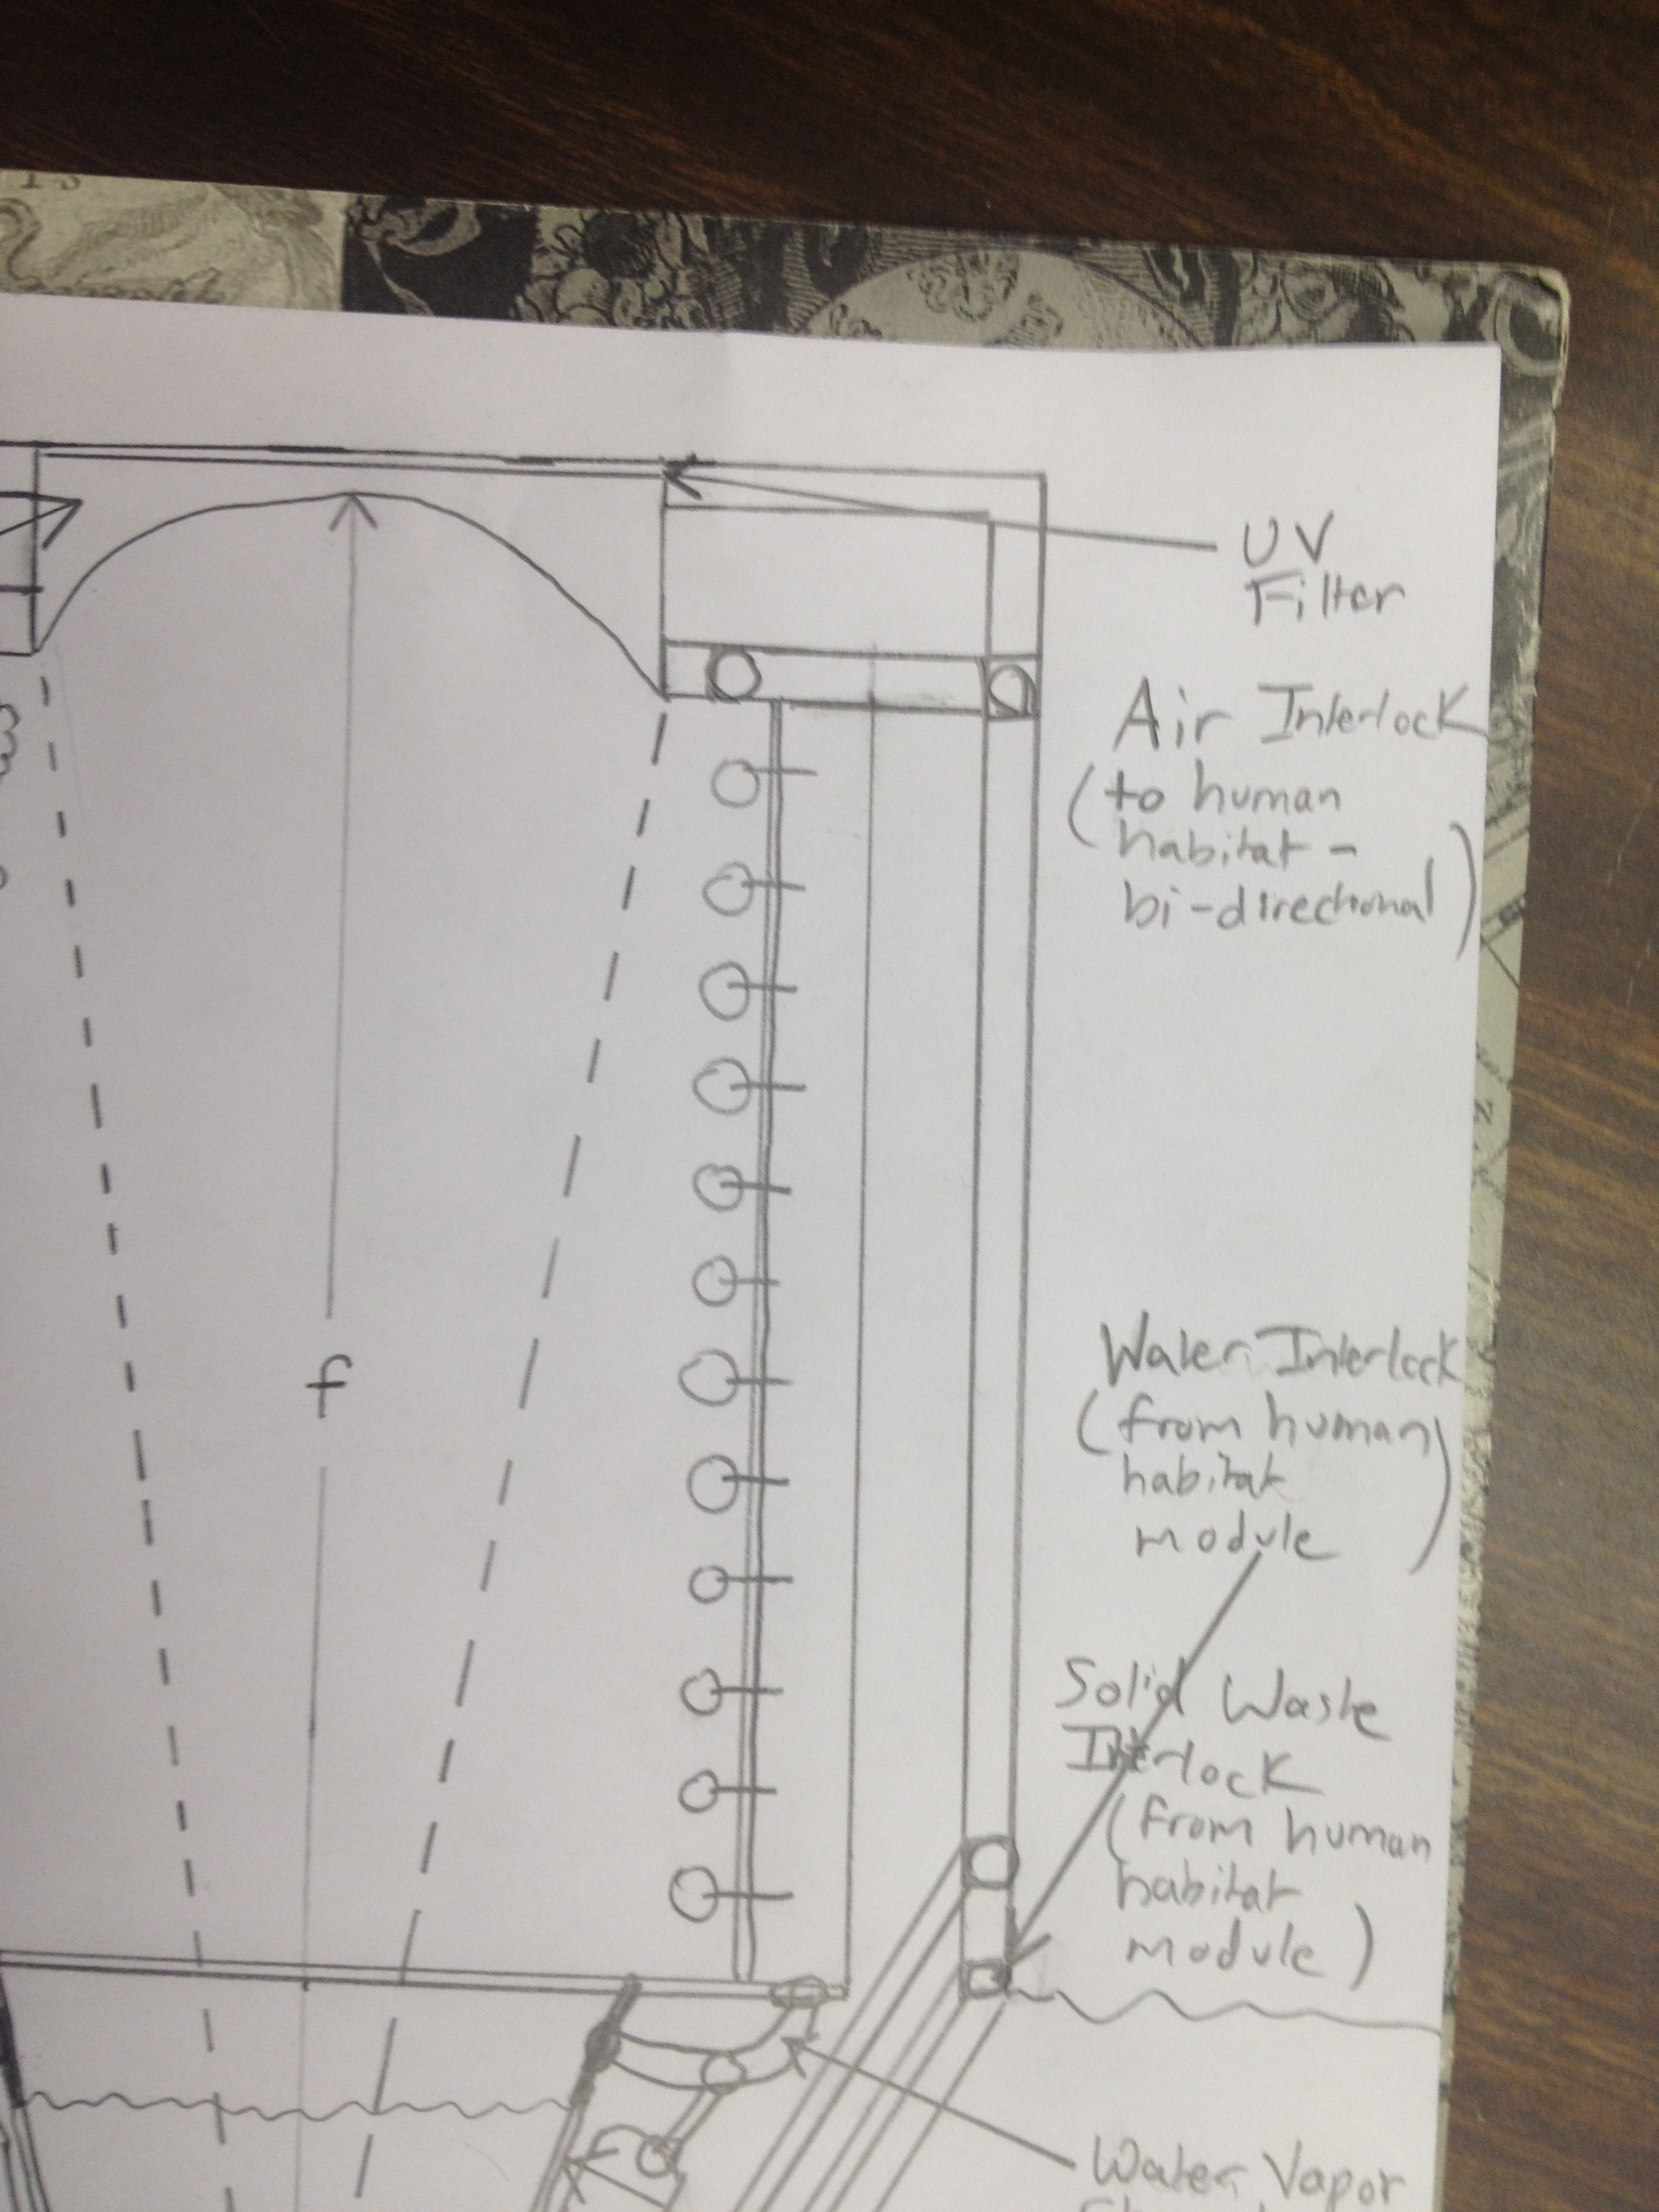 UV
Filter
Air Interlock
(to human
habitat -
bi-directional)
f
Water Interlock
(from human
habitat
module)
Solid Waste
Interlock
(from human
habitat
module)
Water Vapor